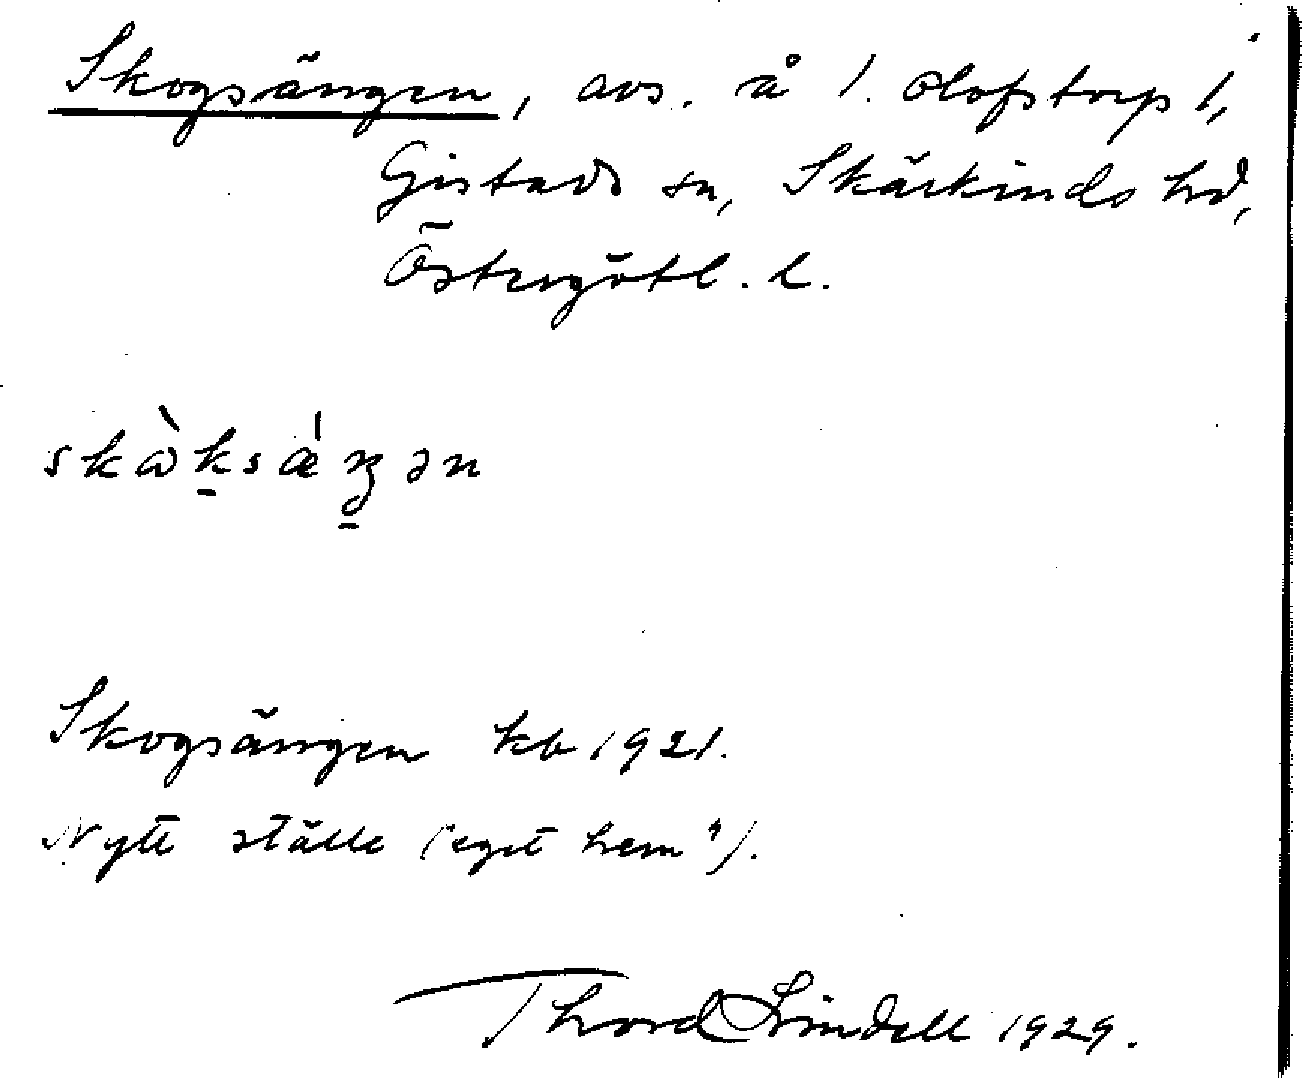 Skogsängen, avs. å 1. Olofstorp 1,
Gistads sn, Skärkinds hd,
Östergötl. l.
skὼk̠sǽŋ̠ən
Skogsängen kb 1921.
Nytt ställe ("eget hem").
Thord Lindell 1929.